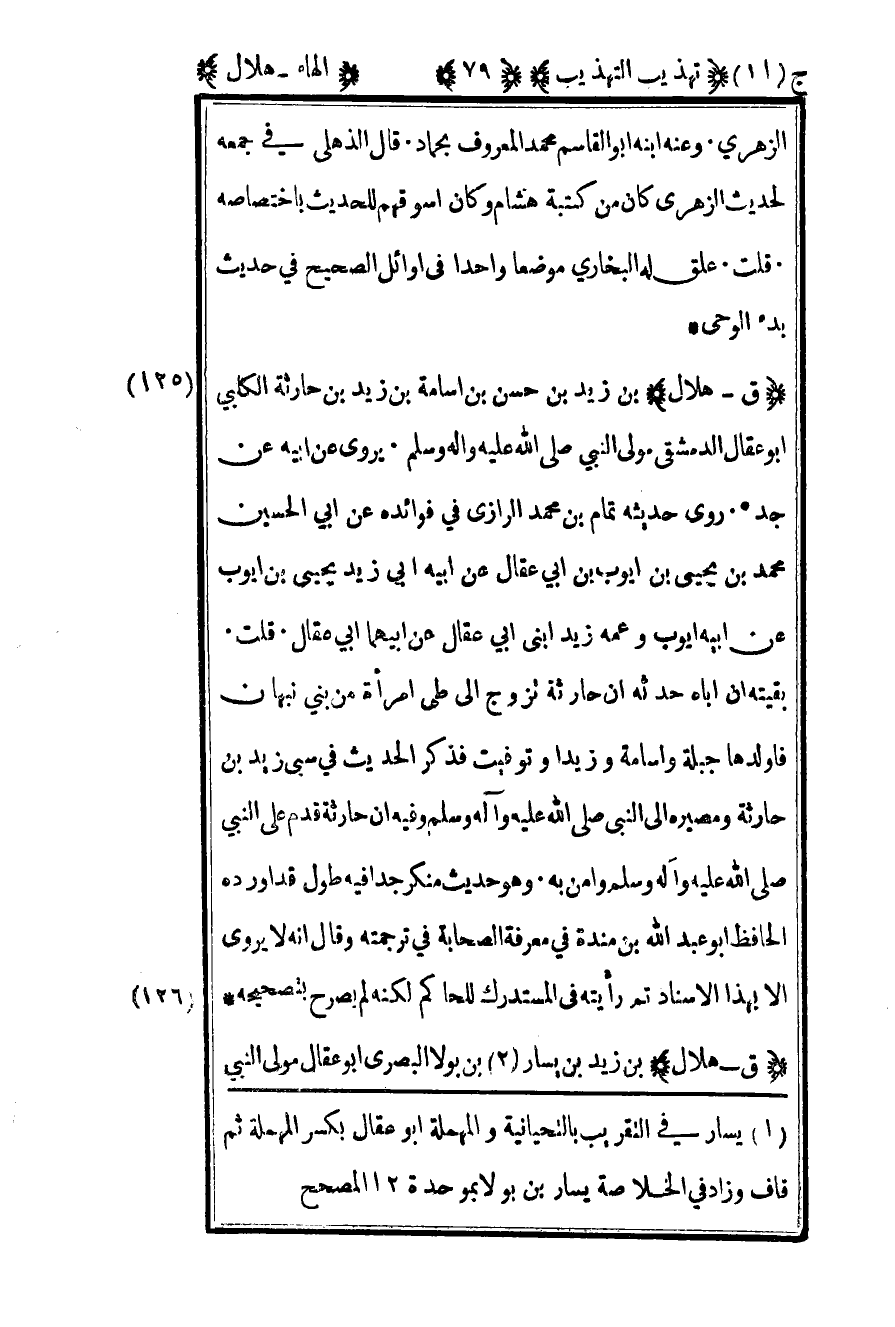 ج (١١) ﴿ تهذيب التهذيب ﴾ ﴿ ٧٩ ﴾ ﴿ الهاء - هلال ﴾
الزهري · وعنه ابنه ابو القاسم محمد المعروف بحماد · قال الذهلى في جمعه
لحديث الزهرى كان من كتبة هشام وكان اسوقهم للحديث باختصاصه
· قلت · علق له البخاري موضعا واحدا فى اوائل الصحيح في حديث
بدء الوحى *
(١٢٥) ﴿ ق - هلال ﴾ بن زيد بن حسن بن اسامة بن زيد بن حارثة الكلبي
ابو عقال الدمشقى مولى النبي صلى الله عليه واله وسلم · يروى عن ابيه عن
جده · روى حديثه تمام بن محمد الرازى في فوائده عن ابي الحسين
محمد بن يحيى بن ايوب بن ابي عقال عن ابيه ابي زيد يحيى بن ايوب
عن ابيه ايوب و عمه زيد ابنى ابي عقال عن ابيهما ابي عقال · قلت ·
بقيته ان اباه حدثه ان حارثة تزوج الى طى امرأة من بني نبهان
فاولدها جبلة واسامة و زيدا و توفيت فذكر الحديث في سبى زيد بن
حارثة ومصيره الى النبى صلى الله عليه وآله وسلم وفيه ان حارثة قدم على النبي
صلى الله عليه وآله وسلم وامن به · وهو حديث منكر جدا فيه طول قد اورده
الحافظ ابو عبد الله بن مندة في معرفة الصحابة في ترجمته وقال انه لا يروى
الا بهذا الاسناد ثم رأيته فى المستدرك للحاكم لكنه لم يصرح بتصحيحه *
(١٢٦) ﴿ ق - هلال ﴾ بن زيد بن يسار (٢) بن بولا البصرى ابو عقال مولى النبي
(١) يسار في التقريب بالتحيانية و المهملة ابو عقال بكسر المهملة ثم
قاف وزاد في الخلاصة يسار بن بولا بموحدة ١٢ المصحح